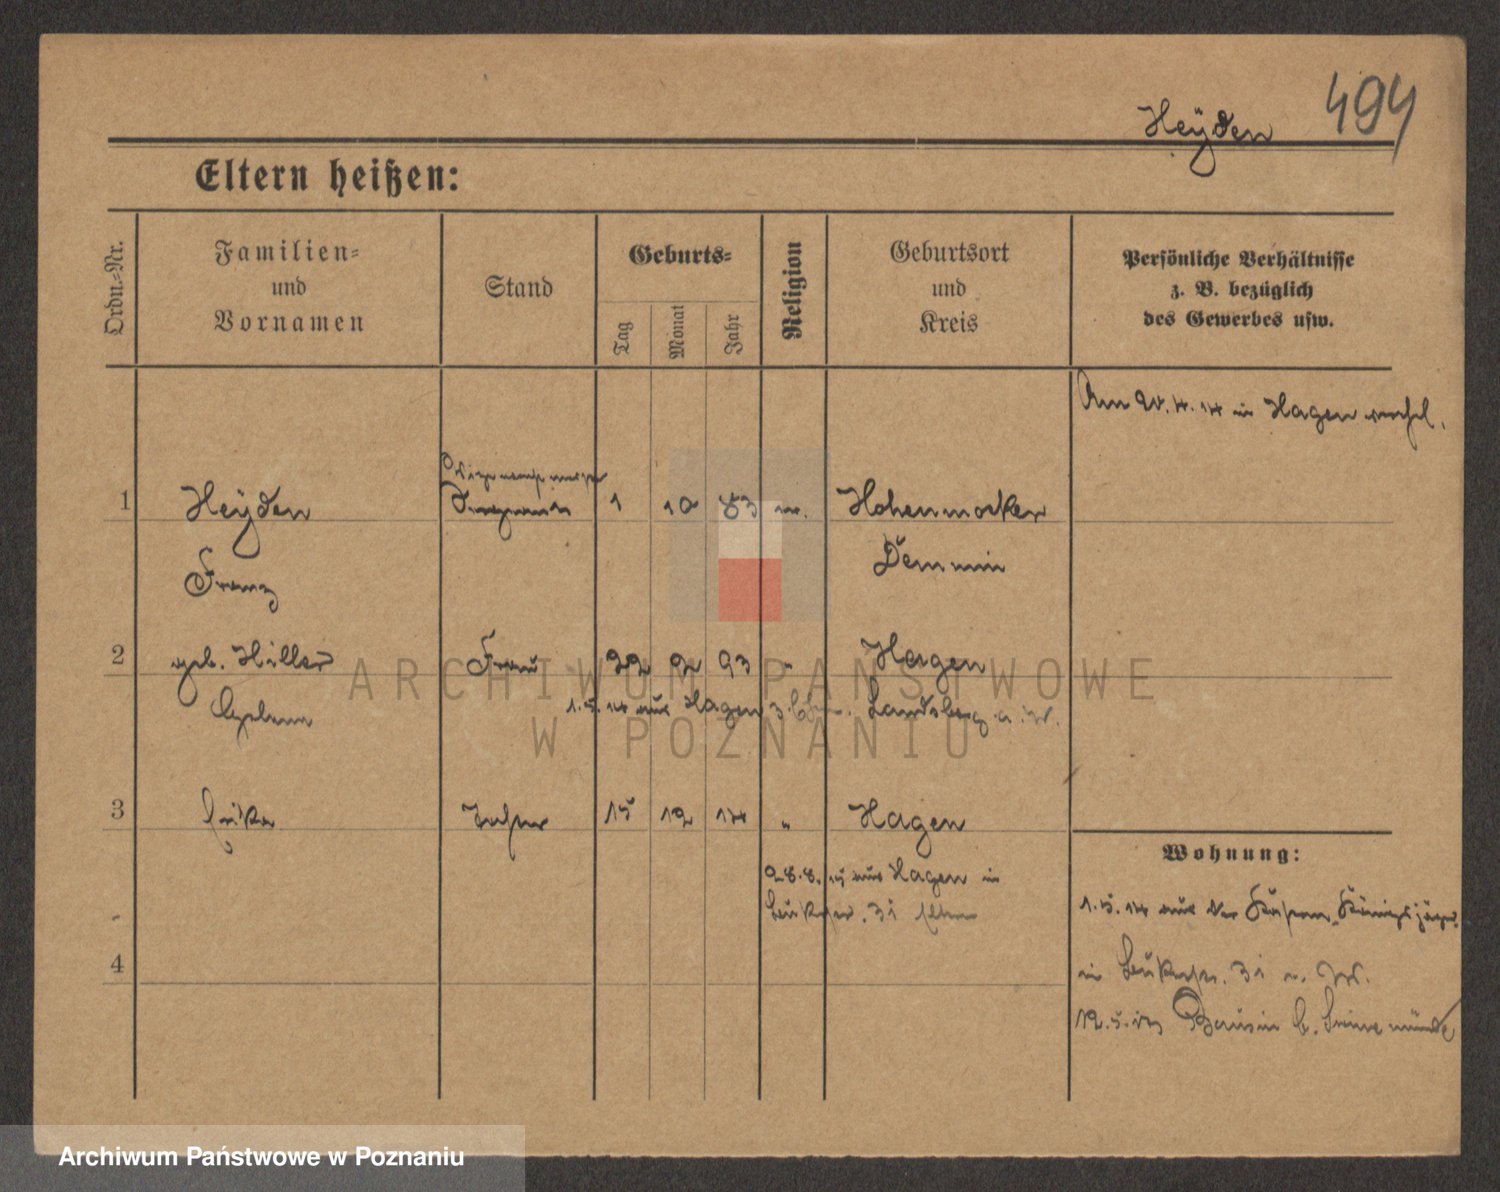 Heÿden 494
Eltern heißen:
Ordn.-Nr.
Familien-
und
Vornamen
Stand
Geburts-
Tag
Monat
Jahr
Religion
Geburtsort
und
Kreis
Persönliche Verhältnisse
z. B. bezüglich
des Gewerbes usw.
Am 20.4.14 in Hagen
1 Heÿden 1 10 83 Hohenmocker
Demmin
Franz
2 geb. Hiller Frau 22 2 93 " Hagen
1.5.14 aus Hagen Landsberg a. W.
3 Erika Tochter 15 12 14 " Hagen
Wohnung:
28.8.15 aus Hagen in
31
1.5.14 aus der Königsjäger
4
in 31
12.5. Bansin b. Swinemünde
ARCHIWUM PAŃSTWOWE
W POZNANIU
Archiwum Państwowe w Poznaniu